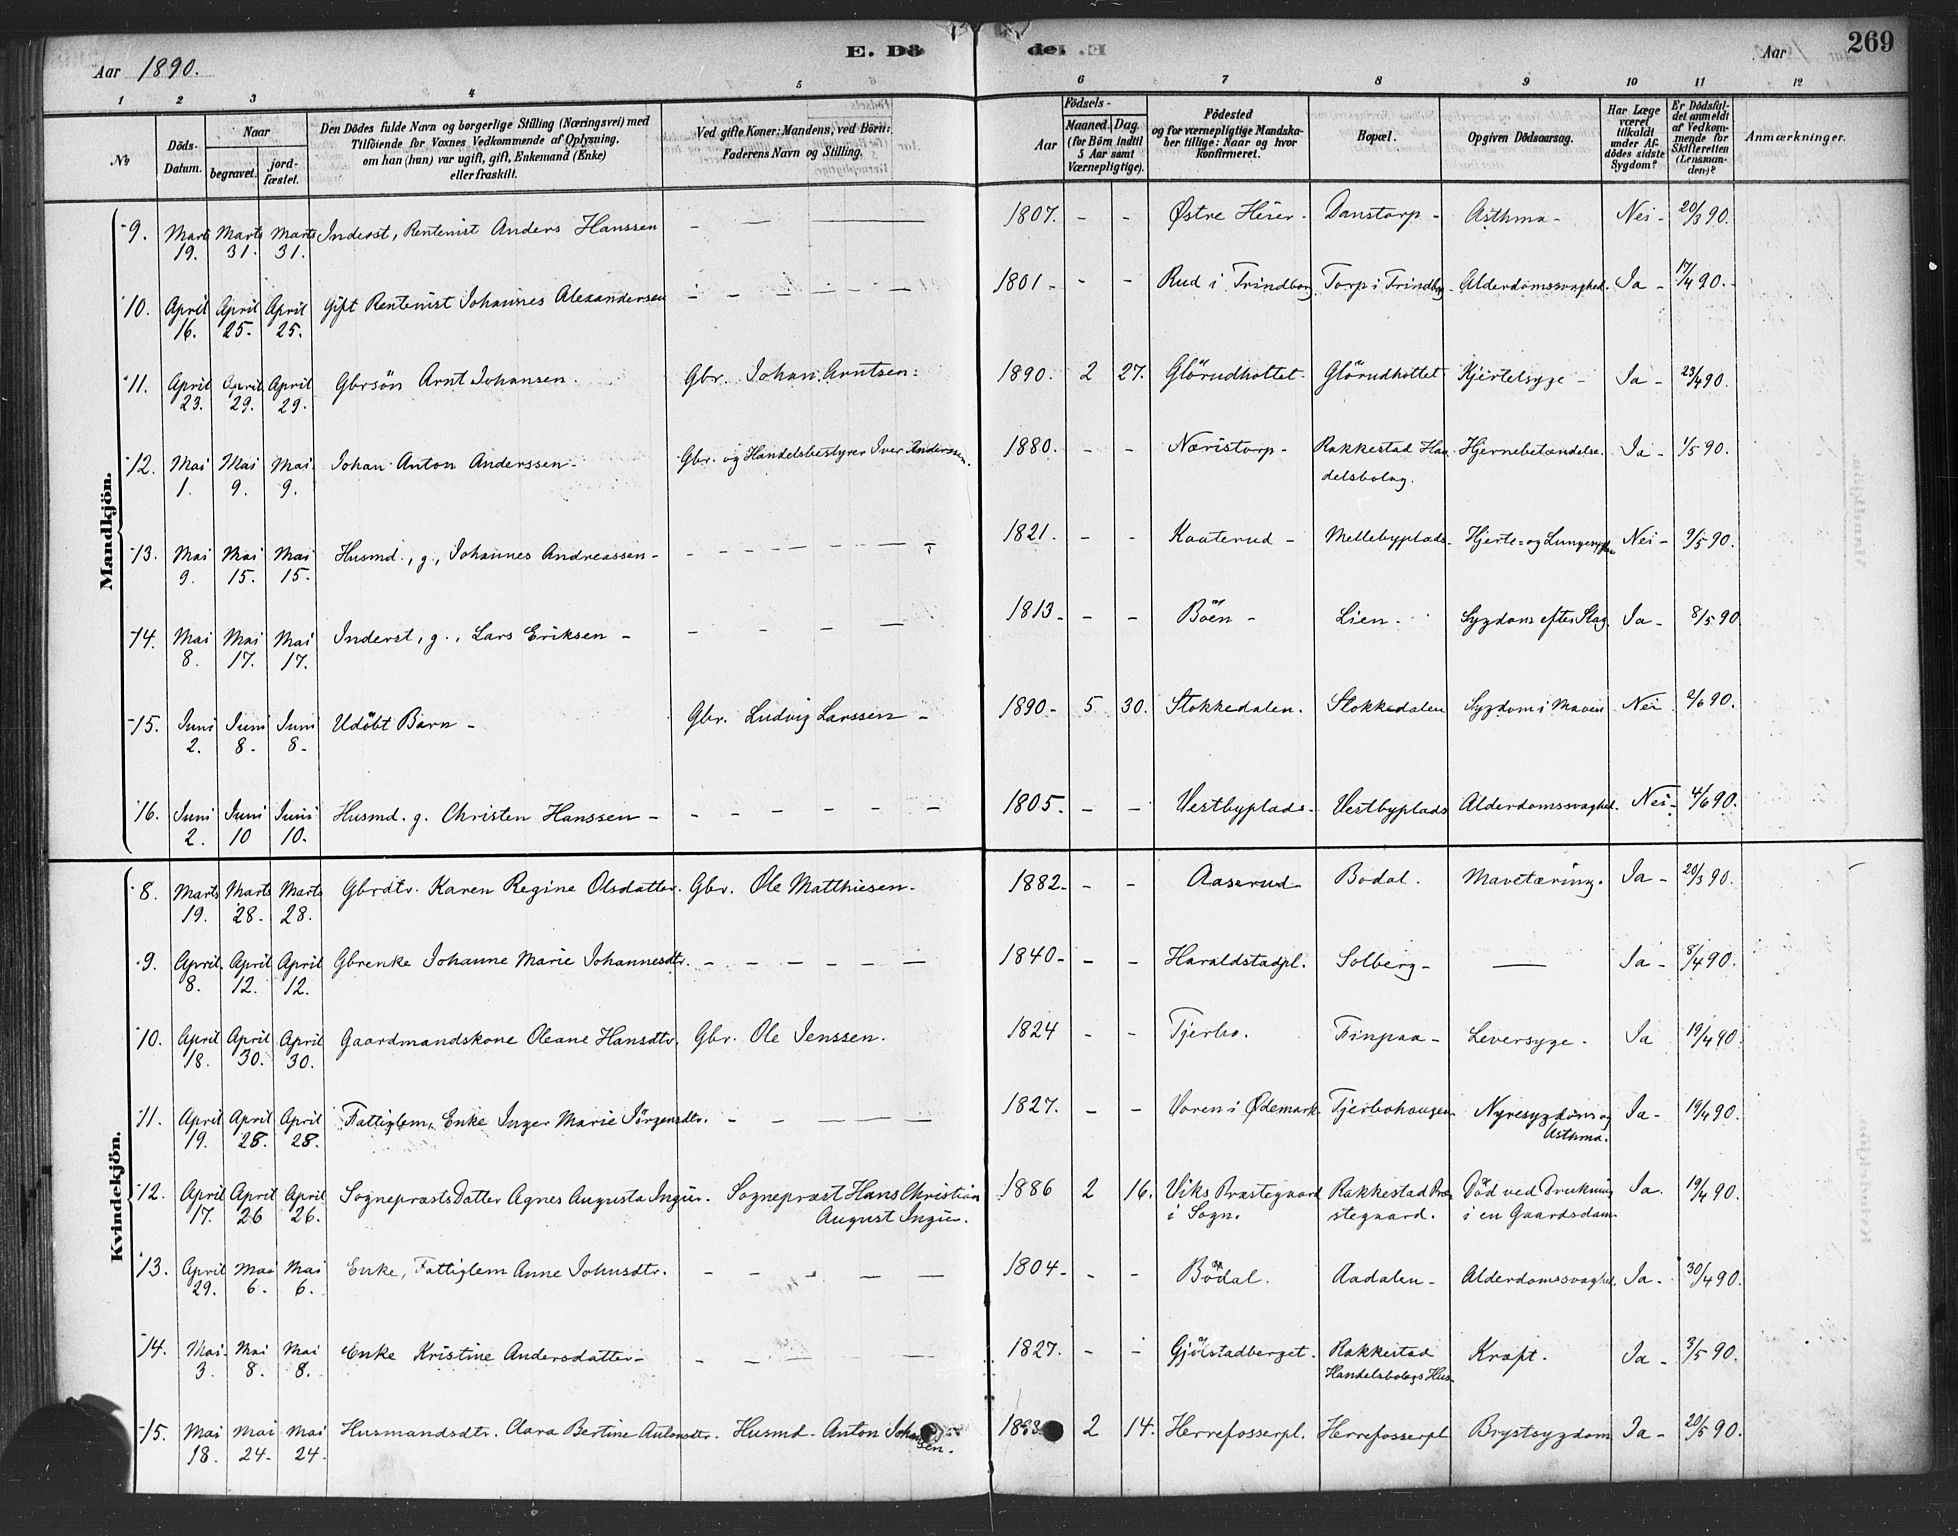 Aar 1890.
E. Dö
de. E
Aar
269
1 2 3 4 5 6 7 8 9 10 11 12
№
Döds-Datum.
Naar
begravet.
jord-fæstet.
Den Dödes fulde Navn og borgerlige Stilling (Næringsvei) med
Tilföiende for Voxnes Vedkommende af Oplysning,
om han (hun) var ugift, gift, Enkemand (Enke)
eller fraskilt.
Ved gifte Koner: Mandens, ved Börn:
Faderens Navn og Stilling.
Aar
Födsels-
Maaned. Dag.
(for Börn indtil
5 Aar samt
Værnepligtige).
Födested
og for værnepligtige Mandska-
ber tillige: Naar og hvor
konfirmeret.
Bopæl.
Opgiven Dödsaarsag.
Har Læge
været
tilkaldt
under Af-
dödes sidste
Sygdom?
Er Dödsfal-
det anmeldt
af Vedkom-
mende for
Skifteretten
(Lensman-
den)?
Anmærkninger.
Mandkjön.
9. Marts 19. Marts 31. Marts 31. Inderst, Rentenist Anders Hanssen - — — 1807. - - Østre Heier - Danstorp - Asthma - Nei - 20/3 90.
10. April 16. April 25. April 25. Gift Rentenist Johannes Alexandersen - - - - - - - 1801 - - - Rud i Trindborg Torp i Trindbg. Alderdomssvaghed. Ja - 17/4 90. -
11. April 23. April 29. April 29. Gbrsön Arnt Johansen. Gbr. Johan Arntsen: 1890. 2 27. Glörudhottet - Glörudhottet Kjertelsyge - Ja - 23/4 90.
12. Mai 1. Mai 9. Mai 9. Johan Anton Anderssen - Gbr. og Handelsbestyrer Iver Anderssen. 1880. - - Næristorp - Rakkestad Han- Hjernebetændelse. Ja - 1/5 90.
delsbolag.
13. Mai 9. Mai 15. Mai 15. Husmd., g., Johannes Andreassen - - - - - - - - 1821. - - Kaaterud - Mellebyplads - Hjerte= og Lungesygdom Nei - 9/5 90.
14. Mai 8. Mai 17. Mai 17. Inderst, g., Lars Eriksen - - - - — 1813 - - - Böen - Lien - Sygdom efter Slag. Ja - 8/5 90
15. Juni 2. Juni 8 - Juni 8 - Udöbt Barn - Gbr. Ludvig Larssen - 1890 - 5 30. Stokkedalen. Stokkedalen Sygdom i Maven Nei 2/6 90.
16. Juni 2. Juni 10 Juni 10. Husmd. g. Christen Hanssen - - - - - - - 1805. - - Vestbyplads - Vestbyplads Alderdomssvaghed. Nei - 4/6 90.
Kvindekjön.
8. Marts 19. Marts 28. Marts 28. Gbrdtr. Karen Regine Olsdatter. Gbr. Ole Matthiesen - 1882 - - - Aaserud - Bodal. Mavetæring. Ja - 20/3 90.
9. April 8. April 12. April 12. Gbrenke Johanne Marie Johannesdtr. - - - - - - 1840 - - - Haraldstadpl. Solberg - — Ja - 8/4 90.
10. April 18. April 30. April 30. Gaardmandskone Oleane Hansdtr. Gbr. Ole Jenssen. 1824 - - Tjerbo. Finpaa - Leversyge - Ja 19/4 90.
11. April 19. April 28. April 28. Fattiglem, Enke Inger Marie Jörgensdtr. - - - — — 1827. - - Voren i Ødemark. Tjerbohaugen Nyresygdom og Ja - 19/4 90.
Asthma.
12. April 17. April 26 April 26. Sogneprests Datter Agnes Augusta Ingier. Sogneprest Hans Christian 1886 2 16. Viks Præstegaard Rakkestad Præ- Död ved Drukning Ja. 19/4 90.
August Ingier. i Sogn. stegaard. i en Gaardsdam
13. April 29. Mai 6. Mai 6. Enke, Fattiglem Anne Johnsdtr. - - - - — 1804 - - - Bödal. Aadalen - Alderdomssvaghed. Ja - 30/4 90.
14. Mai 3. Mai 8. Mai 8. Enke Kristine Andersdatter - - - — — 1827. - - Gjölstadberget. Rakkestad Kræft. Ja - 3/5 90.
Handelsbolags Hus-
15. Mai 18. Mai 24 - Mai 24 - Husmandsdtr. Clara Bertine Antonsdtr. Husmd. Anton Johansen. 2 14. Herrefosserpl. Herrefosserpl Brystsygdom Ja - 20/5 90.